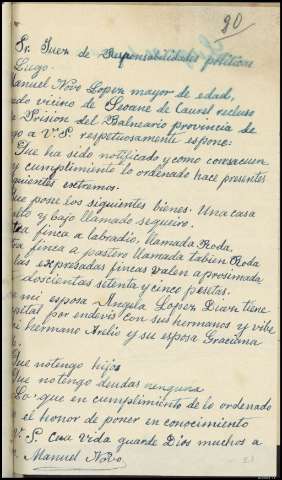 90
Sr. Juez de Responsabilidades políticas
Lugo.
Manuel Novo Lopez mayor de edad,
ado vicino de Seoane de Caurel recluso
a Prision del Balneario provincia de
go a V.S respetuosamente espone:
Que ha sido notificado y como consecuen
y cumplimiento lo ordenado hace presentes
guientes extremos.
Que pose los siguientes bienes. Una casa
alto y bajo llamado sequeiro.
tra finca a labradio, llamada Roda.
ra finca a pastero llamada tabien Roda
las expresadas fincas valen aproximada
doscientas setenta y cinco pesetas.
mi esposa Angela Lopez Diaz tiene
pital por endevis con sus hermanos y vive
i hermano Avelio y su esposa Graciana
Que notengo hijos
Que notengo deudas nenguna
Lo que en cumplimiento de lo ordenado
el honor de poner en conocimiento
V. S. Cuia vida guarde Dios muchos a
Manuel Novo.